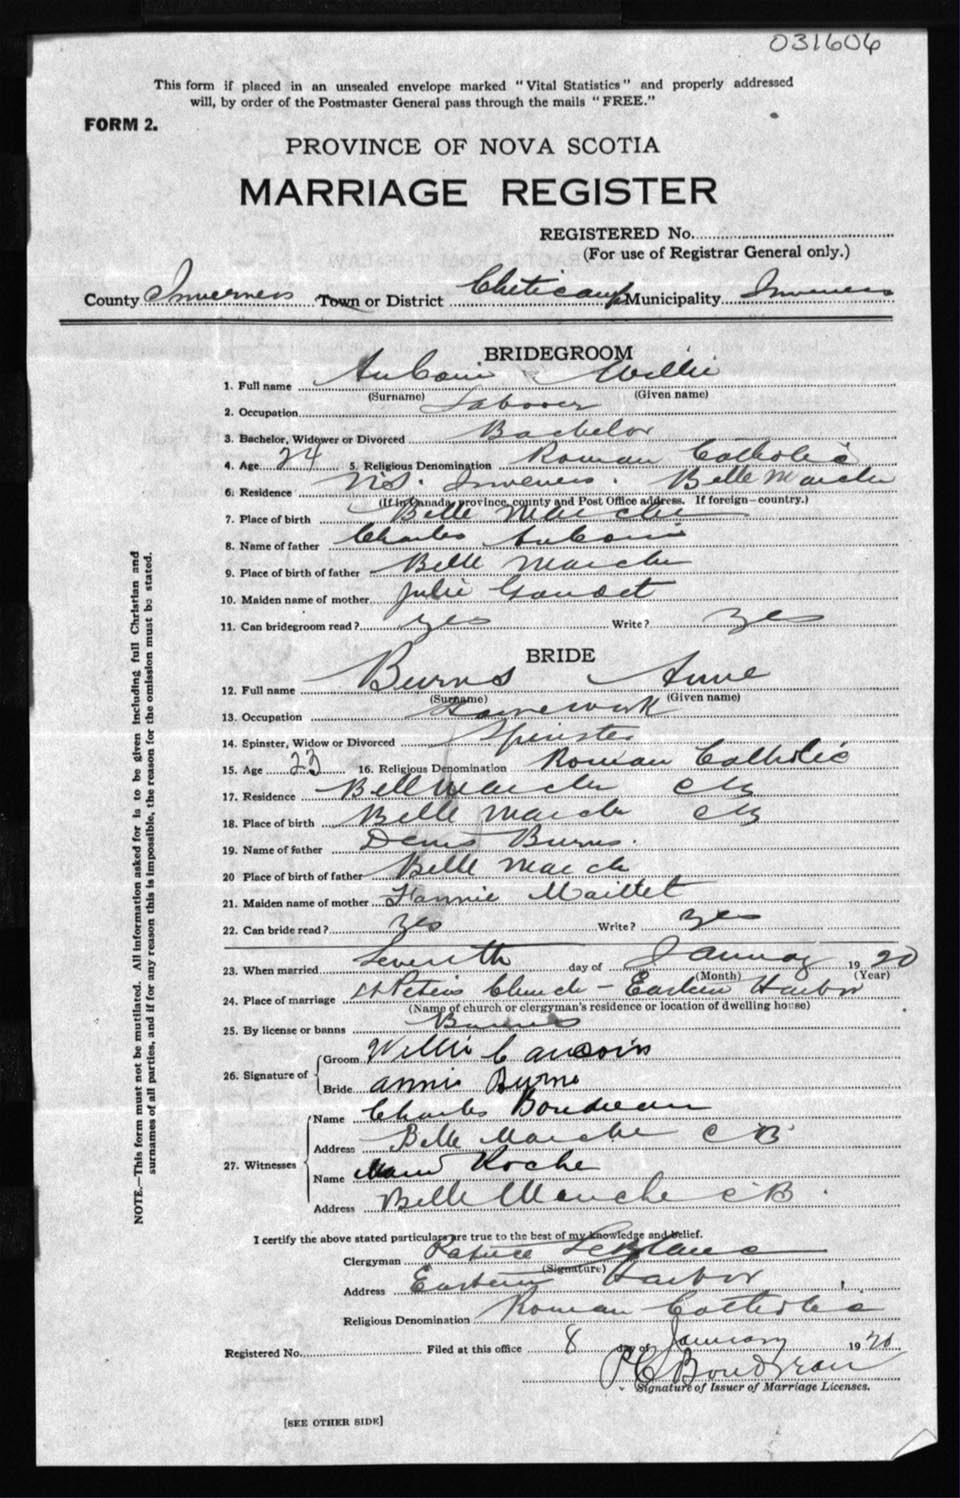 031606
This form if placed in an unsealed envelope marked "Vital Statistics" and properly addressed
will, by order of the Postmaster General pass through the mails "FREE."
FORM 2.
PROVINCE OF NOVA SCOTIA
MARRIAGE REGISTER
REGISTERED No.
(For use of Registrar General only.)
County Inverness Town or District Cheticamp Municipality Inverness
BRIDEGROOM
1. Full name AuCoin Willie
(Surname) (Given name)
2. Occupation Laborer
3. Bachelor, Widower or Divorced Bachelor
4. Age 24 5. Religious Denomination Roman Catholic
6. Residence N.S. Inverness. Belle Marche
(If in Canada, province, county and Post Office address. If foreign—country.)
7. Place of birth Belle Marche
8. Name of father Charles AuCoin
9. Place of birth of father Belle Marche
10. Maiden name of mother Julie Gaudet
11. Can bridegroom read? yes Write? yes
BRIDE
12. Full name Burns Anne
(Surname) (Given name)
13. Occupation Homework
14. Spinster, Widow or Divorced Spinster
15. Age 23 16. Religious Denomination Roman Catholic
17. Residence Belle Marche CB
18. Place of birth Belle Marche CB
19. Name of father Denis Burns.
20 Place of birth of father Belle March
21. Maiden name of mother Fannie Maillet
22. Can bride read? yes Write? yes
23. When married Seventh day of January 1920
(Month) (Year)
24. Place of marriage St Peters Church - Eastern Harbor
(Name of church or clergyman's residence or location of dwelling house)
25. By license or banns Banns
26. Signature of
Groom Willie C aucoin
Bride annie Burns
27. Witnesses
Name Charles Boudreau
Address Belle Marche C B
Name Roche
Address Belle Marche C B.
I certify the above stated particulars are true to the best of my knowledge and belief.
Clergyman LeBlanc
(Signature)
Address Eastern Harbor
Religious Denomination Roman Catholic
Registered No. Filed at this office 8 day of January 1920
P C Boudreau
Signature of Issuer of Marriage Licenses.
[SEE OTHER SIDE]
NOTE.—This form must not be mutilated. All information asked for is to be given including full Christian and
surnames of all parties, and if for any reason this is impossible, the reason for the omission must be stated.